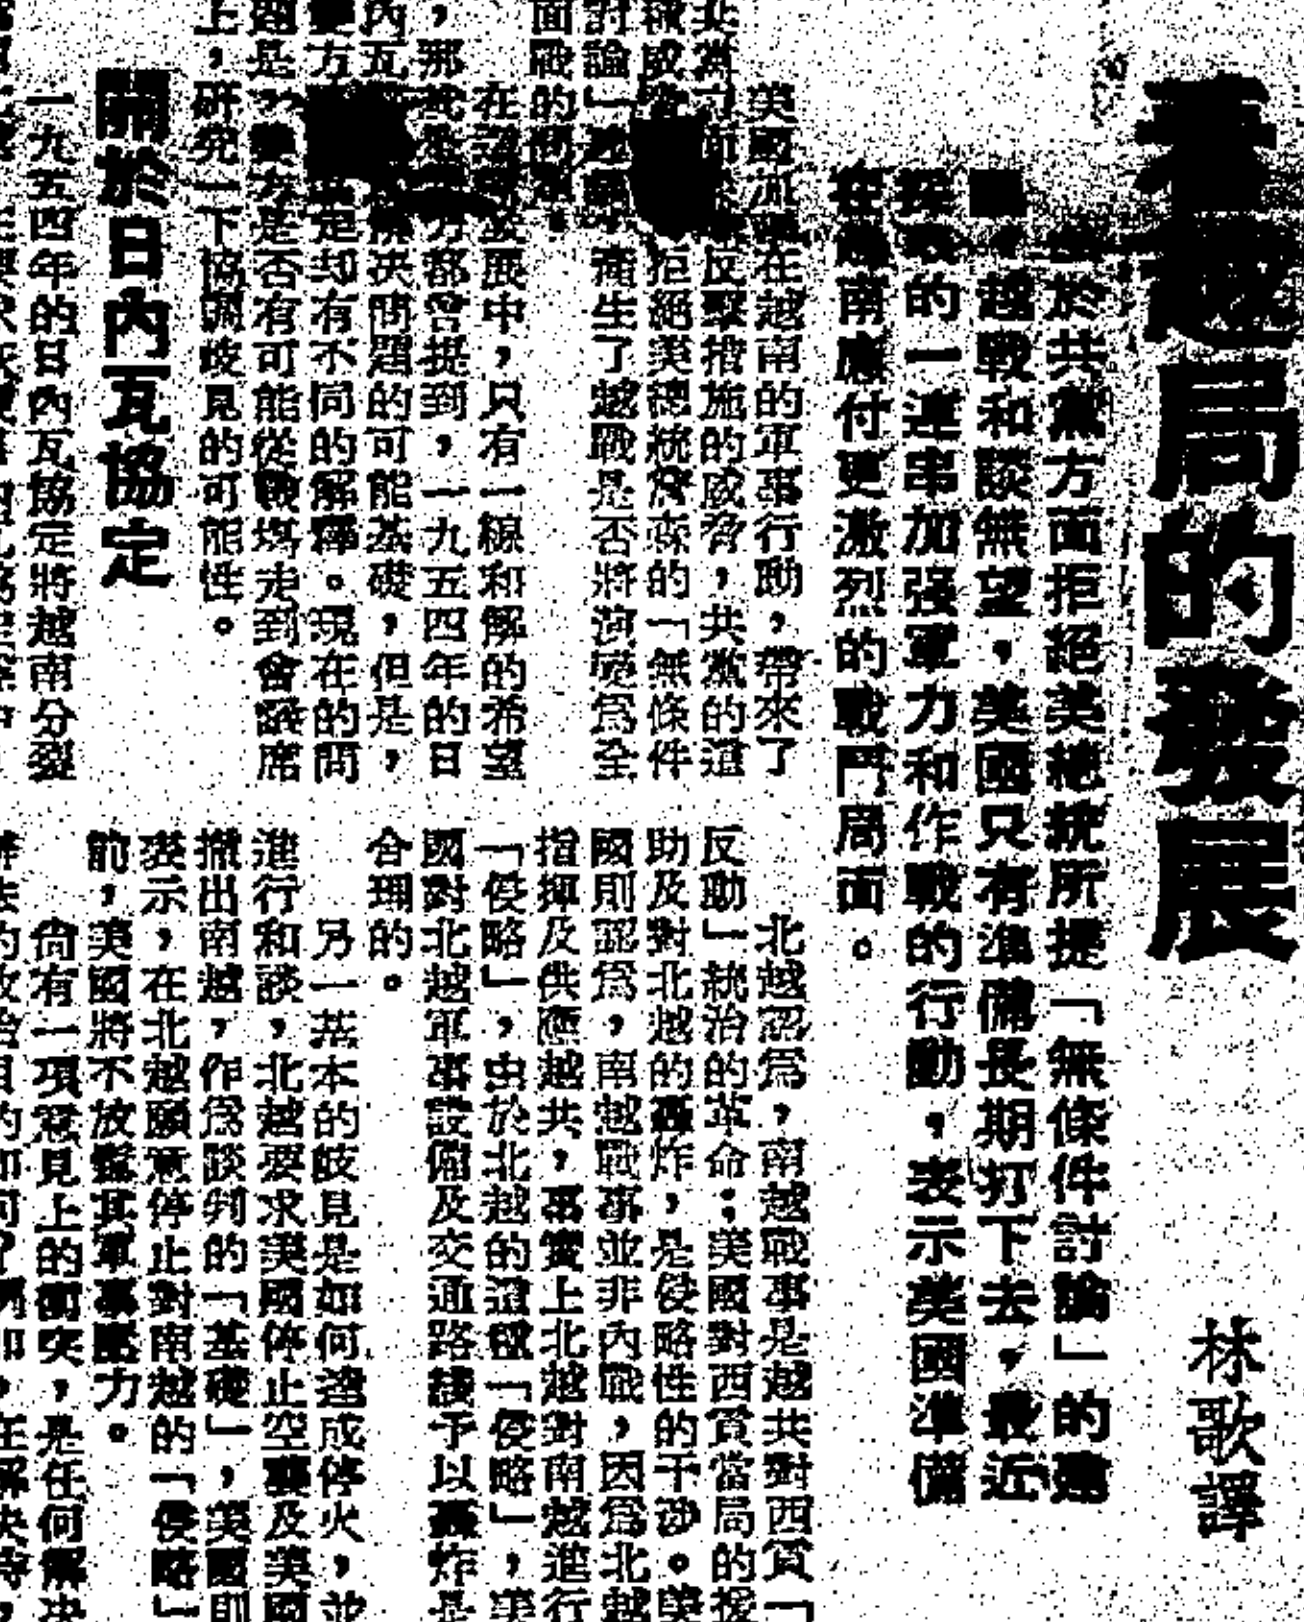 看越局的發展
林歌譯
由於共黨方面拒絕美總統所提「無條件討論」的建
，越戰和談無望，美國只有準備長期打下去，最近
採取的一連串加强軍力和作戰的行動，表示美國準備
在越南應付更激烈的戰鬥局面。
美國 在越南的軍事行動，帶來了
共黨方面 反擊措施的威脅，共黨的這
拒絕美總統詹森的「無條件
討論」建議， 產生了越戰是否將演變爲全
面戰的問題。
在 發展中，只有一線和解的希望
，那就是 方都曾提到，一九五四年的日
內瓦 解決問題的可能基礎，但是，
雙方 定却有不同的解釋。現在的問
題是，雙方是否有可能從戰塲走到會議席
上，研究一下協調歧見的可能性。
關於日內瓦協定
一九五四年的日內瓦協定將越南分裂
北越認爲，南越戰事是越共對西貢「
反動」統治的革命；美國對西貢當局的援
助及對北越的轟炸，是侵略性的干涉。美
國則認爲，南越戰事並非內戰，因爲北越
指揮及供應越共，事實上北越對南越進行
「侵略」，由於北越的這種「侵略」，美
國對北越軍事設備及交通路綫予以轟炸是
合理的。
另一基本的歧見是如何達成停火，並
進行和談，北越要求美國停止空襲及美國
撤出南越，作爲談判的「基礎」，美國則
表示，在北越願意停止對南越的「侵略」
前，美國將不放鬆其軍事壓力。
尙有一項意見上的衝突，是任何解決